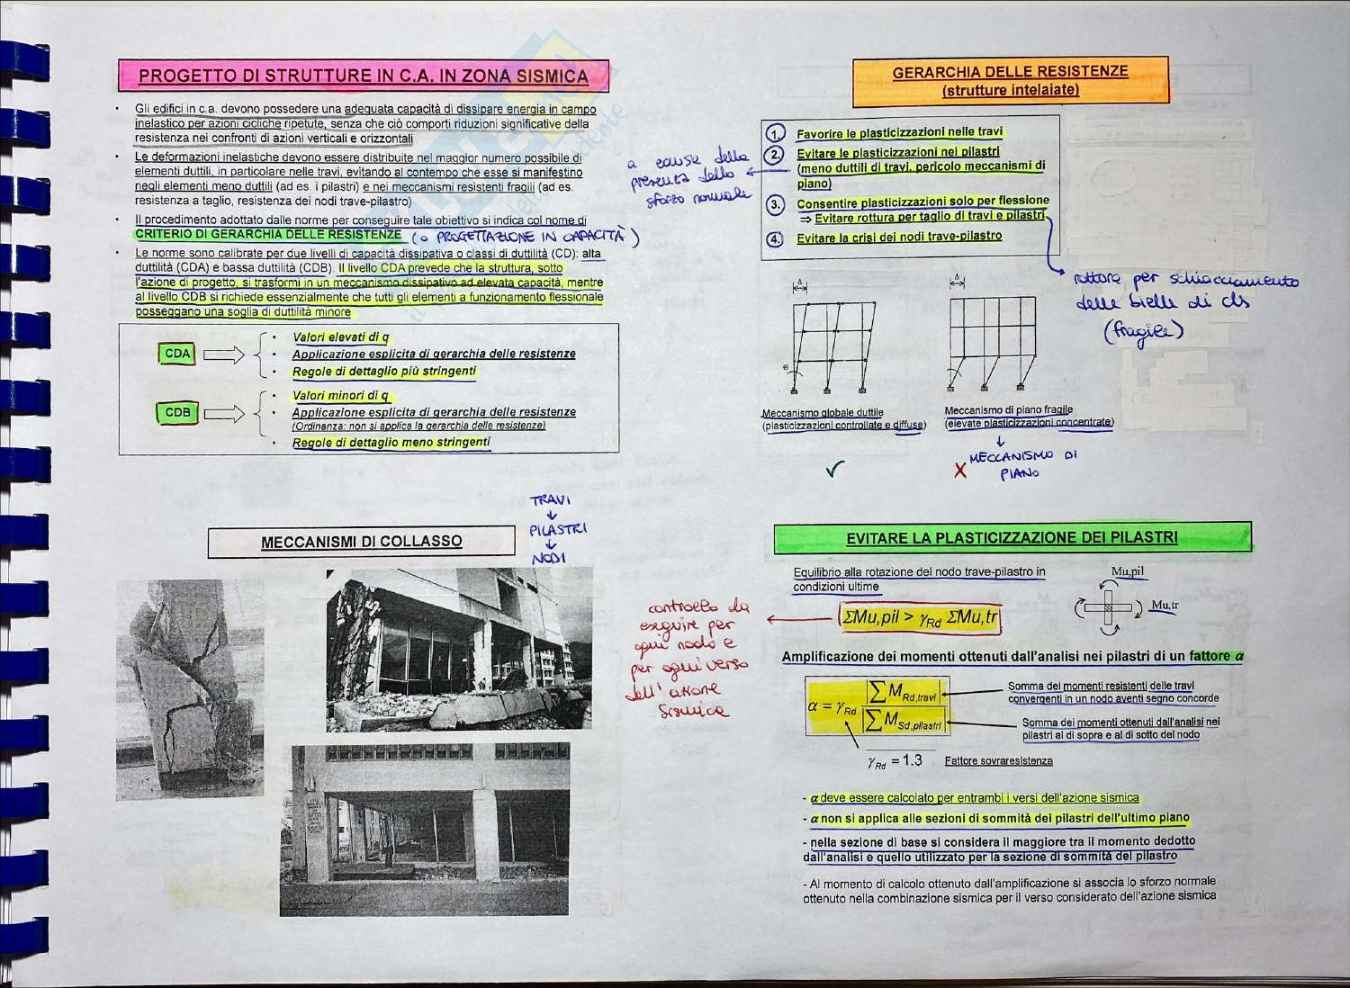 PROGETTO DI STRUTTURE IN C.A. IN ZONA SISMICA
• Gli edifici in c.a. devono possedere una adeguata capacità di dissipare energia in campo
inelastico per azioni cicliche ripetute, senza che ciò comporti riduzioni significative della
resistenza nei confronti di azioni verticali e orizzontali
• Le deformazioni inelastiche devono essere distribuite nel maggior numero possibile di
elementi duttili, in particolare nelle travi, evitando al contempo che esse si manifestino
negli elementi meno duttili (ad es. i pilastri) e nei meccanismi resistenti fragili (ad es.
resistenza a taglio, resistenza dei nodi trave-pilastro)
• Il procedimento adottato dalle norme per conseguire tale obiettivo si indica col nome di
CRITERIO DI GERARCHIA DELLE RESISTENZE (o PROGETTAZIONE IN CAPACITÀ)
• Le norme sono calibrate per due livelli di capacità dissipativa o classi di duttilità (CD): alta
duttilità (CDA) e bassa duttilità (CDB). Il livello CDA prevede che la struttura, sotto
l'azione di progetto, si trasformi in un meccanismo dissipativo ad elevata capacità, mentre
al livello CDB si richiede essenzialmente che tutti gli elementi a funzionamento flessionale
posseggano una soglia di duttilità minore
CDA
• Valori elevati di q
• Applicazione esplicita di gerarchia delle resistenze
• Regole di dettaglio più stringenti
CDB
• Valori minori di q
• Applicazione esplicita di gerarchia delle resistenze
(Ordinanza: non si applica la gerarchia delle resistenze)
• Regole di dettaglio meno stringenti
GERARCHIA DELLE RESISTENZE
(strutture intelaiate)
1. Favorire le plasticizzazioni nelle travi
2. Evitare le plasticizzazioni nei pilastri
(meno duttili di travi, pericolo meccanismi di
piano)
3. Consentire plasticizzazioni solo per flessione
⇒ Evitare rottura per taglio di travi e pilastri
4. Evitare la crisi dei nodi trave-pilastro
a causa della
presenza dello
sforzo normale
rottura per schiacciamento
delle bielle di cls
(fragile)
Δ
Δ
θ
Meccanismo globale duttile
(plasticizzazioni controllate e diffuse)
✓
Meccanismo di piano fragile
(elevate plasticizzazioni concentrate)
↓
X MECCANISMO DI
PIANO
MECCANISMI DI COLLASSO
TRAVI
↓
PILASTRI
↓
NODI
EVITARE LA PLASTICIZZAZIONE DEI PILASTRI
Equilibrio alla rotazione del nodo trave-pilastro in
condizioni ultime
Mu,pil
Mu,tr
ΣMu,pil > γRd ΣMu,tr
controllo da
eseguire per
ogni nodo e
per ogni verso
dell'azione
sismica
Amplificazione dei momenti ottenuti dall'analisi nei pilastri di un fattore α
α = γRd |∑ MRd,travi| / |∑ MSd,pilastri|
Somma dei momenti resistenti delle travi
convergenti in un nodo aventi segno concorde
Somma dei momenti ottenuti dall'analisi nei
pilastri al di sopra e al di sotto del nodo
γRd = 1.3 Fattore sovraresistenza
- α deve essere calcolato per entrambi i versi dell'azione sismica
- α non si applica alle sezioni di sommità dei pilastri dell'ultimo piano
- nella sezione di base si considera il maggiore tra il momento dedotto
dall'analisi e quello utilizzato per la sezione di sommità del pilastro
- Al momento di calcolo ottenuto dall'amplificazione si associa lo sforzo normale
ottenuto nella combinazione sismica per il verso considerato dell'azione sismica